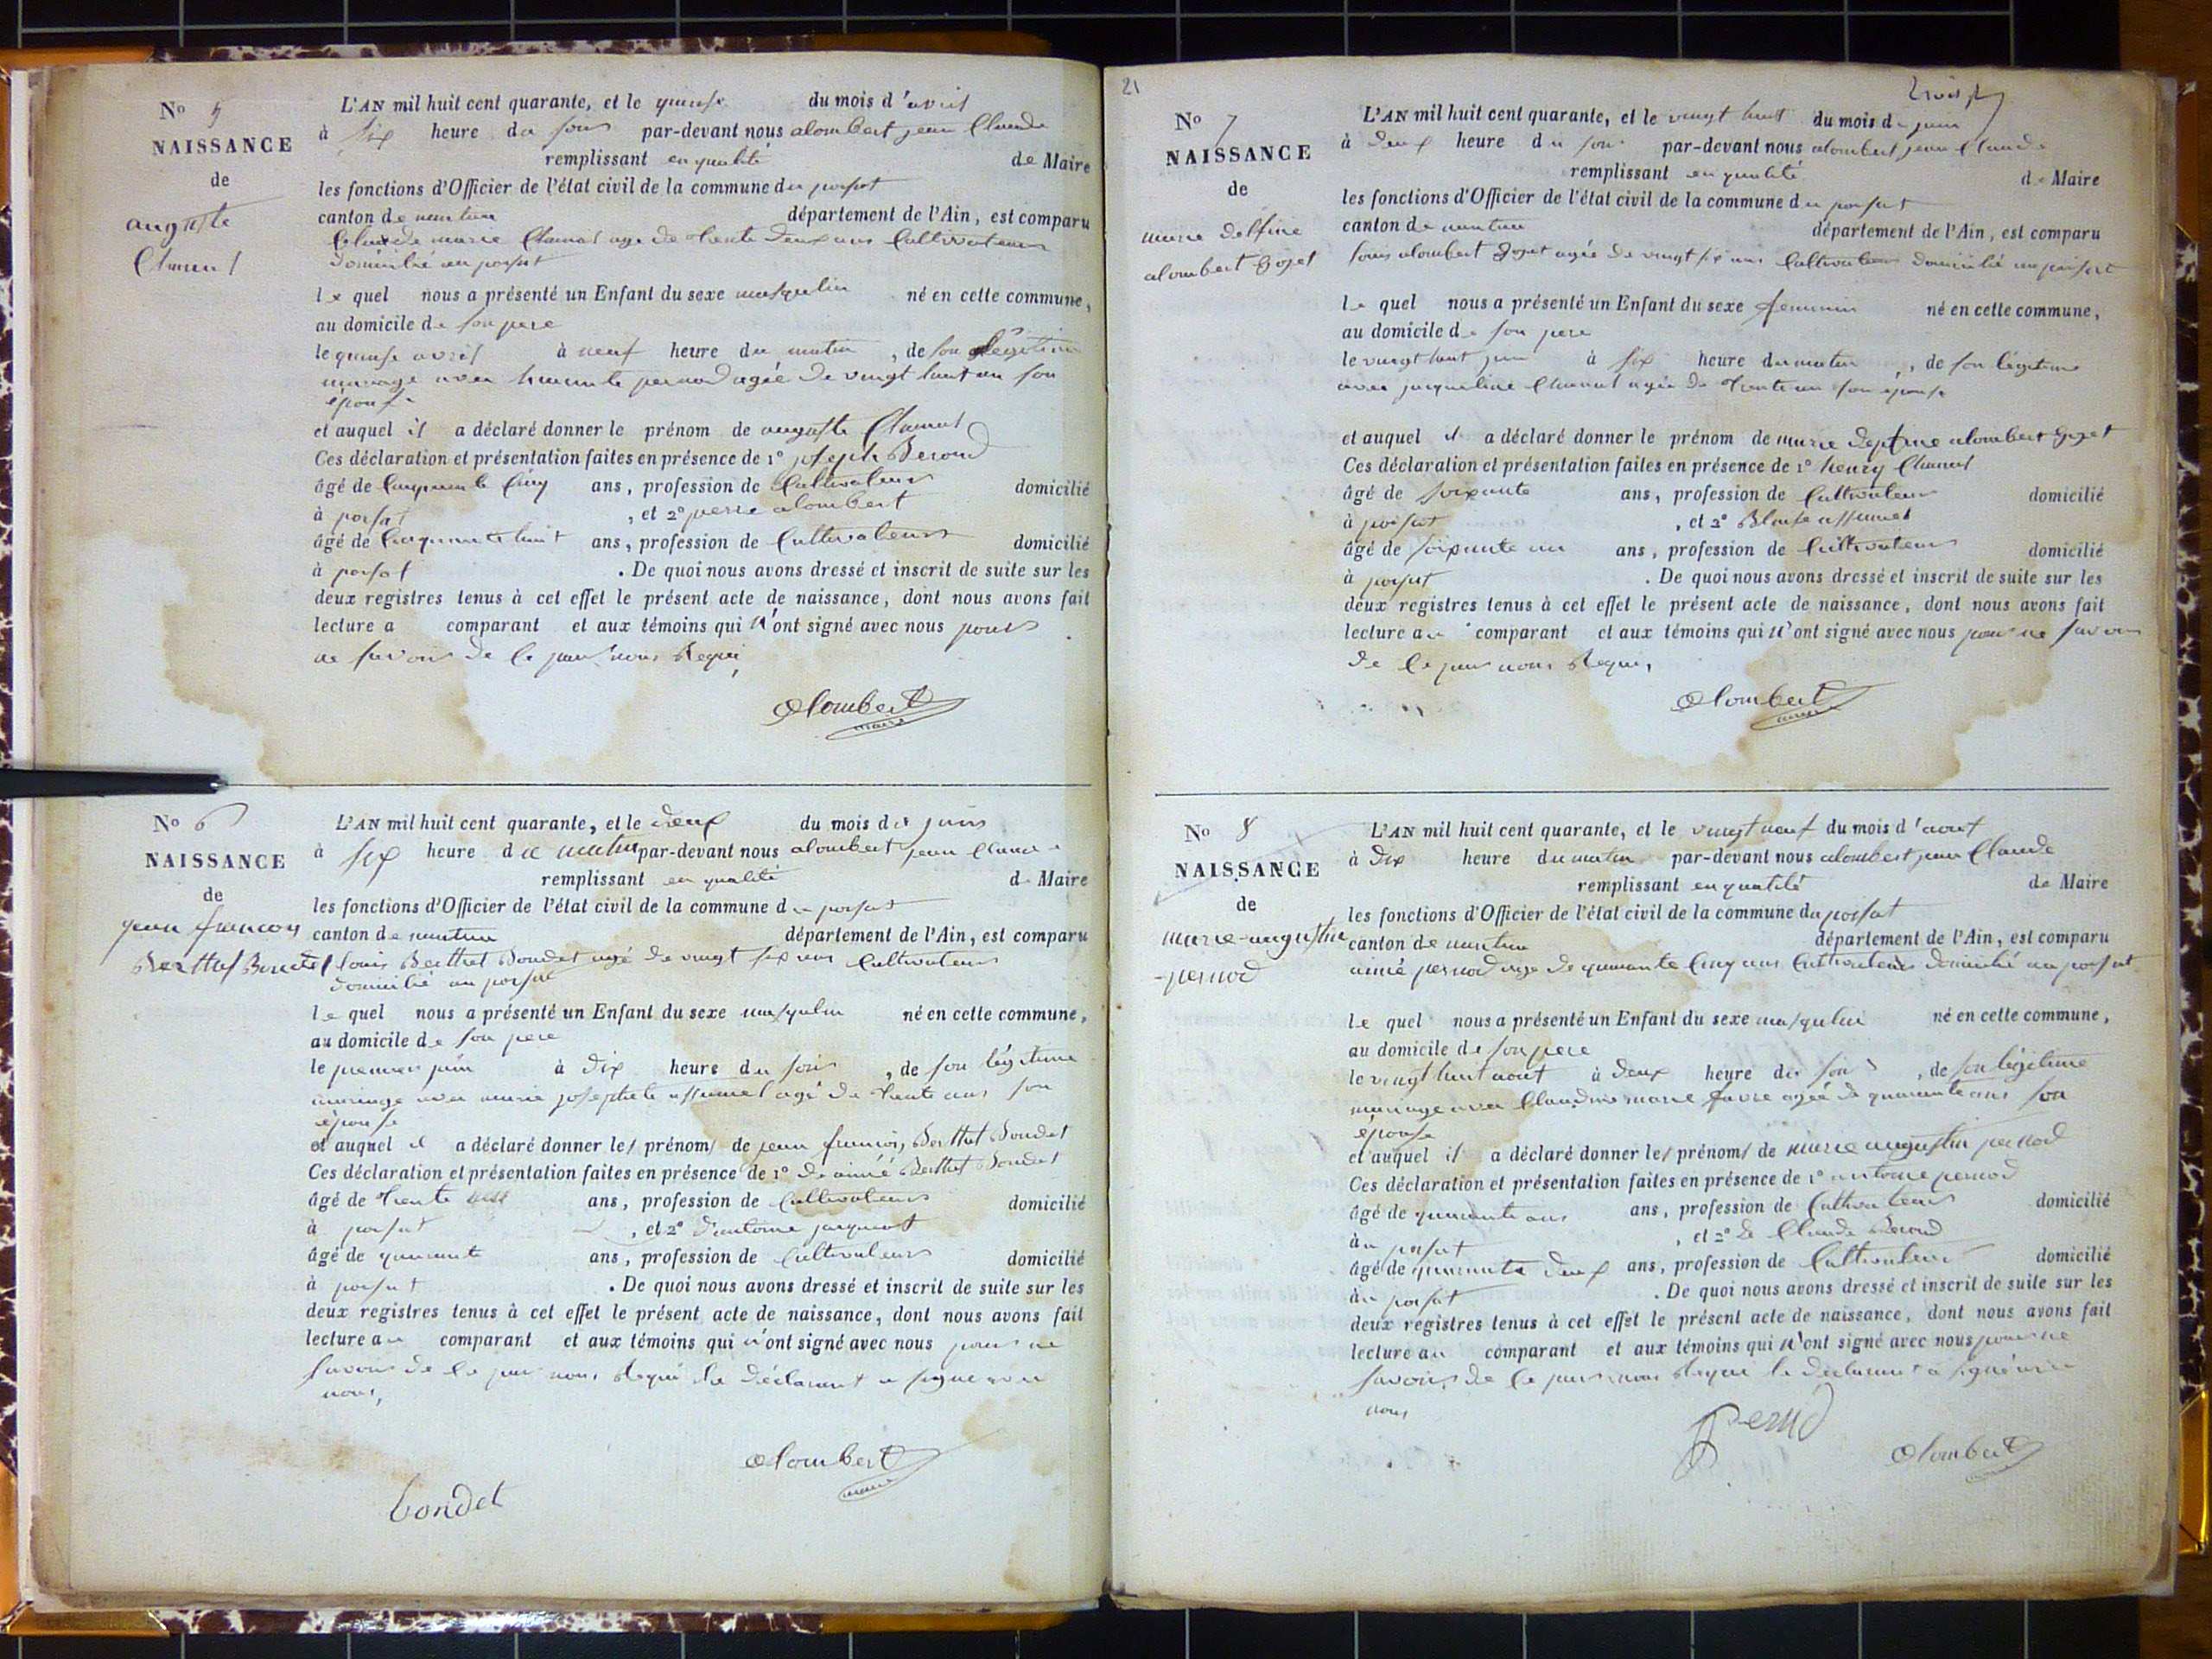 N° 5
NAISSANCE
de
auguste
Chanal
L'AN mil huit cent quarante, et le quinse du mois d'avril
à six heure du soir par-devant nous alombert jean Claude
remplissant en qualité de Maire
les fonctions d'Officier de l'état civil de la commune du poisat
canton de nantua département de l'Ain, est comparu
Claude marie Chanal age de trente deux ans Cultivateur
domicilié au poisat
le quel nous a présenté un Enfant du sexe masqulin né en cette commune,
au domicile de son pere
le quinse avril à neuf heure du matin, de son légitime
mariage avec pernod agée de vingt huit an son
épouse
et auquel il a déclaré donner le prénom de auguste Chanal
Ces déclaration et présentation faites en présence de 1° joseph Beroud
âgé de Cinquante Cinq ans, profession de Cultivateur domicilié
à poisat, et 2° pierre alombert
âgé de Cinquante huit ans, profession de Cultivateur domicilié
à poisat. De quoi nous avons dressé et inscrit de suite sur les
deux registres tenus à cet effet le présent acte de naissance, dont nous avons fait
lecture a comparant et aux témoins qui n'ont signé avec nous pour
ne savoir de Ce par nous Requi,
alombert
maire
N° 6
NAISSANCE
de
jean francois
Berthet Bondet
L'AN mil huit cent quarante, et le deux du mois de juin
à six heure du matin par-devant nous alombert jean Claude
remplissant en qualité de Maire
les fonctions d'Officier de l'état civil de la commune du poisat
canton de nantua département de l'Ain, est comparu
louis Berthet Bondet agé de vingt six ans Cultivateur
domicilié au poisat
le quel nous a présenté un Enfant du sexe masqulin né en cette commune,
au domicile de son pere
le premier juin à dix heure du soir, de son légitime
mariage avec marie josephete assumel agé de trente ans son
épouse
et auquel il a déclaré donner les prénoms de jean francois Berthet Bondet
Ces déclaration et présentation faites en présence de 1° de aimé Berthet Bondet
âgé de trente ans, profession de Cultivateur domicilié
à poisat, et 2° d'antoine jacquinot
âgé de quarante ans, profession de Cultivateur domicilié
à poisat. De quoi nous avons dressé et inscrit de suite sur les
deux registres tenus à cet effet le présent acte de naissance, dont nous avons fait
lecture au comparant et aux témoins qui n'ont signé avec nous pour ne
savoir de Ce par nous Requi le déclarant a signé avec
nous,
alombert
maire
bondet
21
N° 7
NAISSANCE
de
marie delfine
alombert goget
L'AN mil huit cent quarante, et le vingt huit du mois de juin
à deux heure du soir par-devant nous alombert jean Claude
remplissant en qualité de Maire
les fonctions d'Officier de l'état civil de la commune du poisat
canton de nantua département de l'Ain, est comparu
louis alombert goget agée de vingt six ans Cultivateur domicilié au poisat
le quel nous a présenté un Enfant du sexe feminin né en cette commune,
au domicile de son pere
le vingt huit juin à six heure du matin, de son légitime
avec jacqueline Chanal agée de trente an son epouse
et auquel il a déclaré donner le prénom de marie alombert goget
Ces déclaration et présentation faites en présence de 1° henry Chanal
âgé de soixante ans, profession de Cultivateur domicilié
à poisat, et 2° Blaise assumel
âgé de soixante un ans, profession de Cultivateur domicilié
à poisat. De quoi nous avons dressé et inscrit de suite sur les
deux registres tenus à cet effet le présent acte de naissance, dont nous avons fait
lecture au comparant et aux témoins qui n'ont signé avec nous pour ne savoir
de Ce par nous Requi,
alombert
maire
N° 8
NAISSANCE
de
marie-augustin
-pernod
L'AN mil huit cent quarante, et le vingt neuf du mois d'aout
à dix heure du matin par-devant nous alombert jean Claude
remplissant en qualité de Maire
les fonctions d'Officier de l'état civil de la commune du poisat
canton de nantua département de l'Ain, est comparu
aimé pernod age de quarante Cinq ans Cultivateur domicilié au poisat
le quel nous a présenté un Enfant du sexe masqulin né en cette commune,
au domicile de son pere
le vingt huit aout à deux heure du soir, de son légitime
mariage avec Claudine marie favre agée de quarante ans son
épouse
et auquel il a déclaré donner les prénoms de marie augustin pernod
Ces déclaration et présentation faites en présence de 1° antoine pernod
âgé de quarante ans ans, profession de Cultivateur domicilié
au poisat, et 2° de Claude Beroud
âgé de quarante deux ans, profession de Cultivateur domicilié
au poisat. De quoi nous avons dressé et inscrit de suite sur les
deux registres tenus à cet effet le présent acte de naissance, dont nous avons fait
lecture au comparant et aux témoins qui n'ont signé avec nous pour ne
savoir de Ce par nous Requi le déclarant a signé avec
nous
alombert